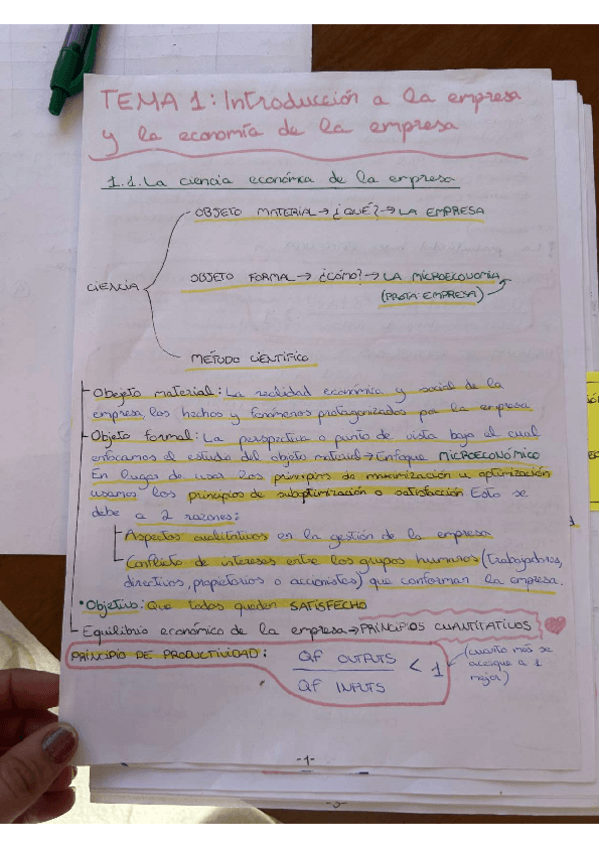 TEMA 1: Introducción a la empresa
y la economía de la empresa
1.1. La ciencia económica de la empresa
OBJETO MATERIAL → ¿QUÉ? → LA EMPRESA
CIENCIA
OBJETO FORMAL → ¿CÓMO? → LA MICROECONOMÍA
(PROTA: EMPRESA)
MÉTODO CIENTÍFICO
Objeto material: La realidad económica y social de la
empresa, los hechos y fenómenos protagonizados por la empresa
Objeto formal: La perspectiva o punto de vista bajo el cual
enfocamos el estudio del objeto material → Enfoque MICROECONÓMICO
En lugar de usar los principios de maximización u optimización
usamos los principios de suboptimización o satisfacción Esto se
debe a 2 razones:
Aspectos cualitativos en la gestión de la empresa
Conflicto de intereses entre los grupos humanos (trabajadores,
directivos, propietarios o accionistas) que conforman la empresa.
• Objetivo: Que todos queden SATISFECHO
Equilibrio económico de la empresa → PRINCIPIOS CUANTITATIVOS
PRINCIPIO DE PRODUCTIVIDAD: Qf OUTPUTS / Qf INPUTS < 1
(cuanto más se
acerque a 1
mejor)
-1-
-3-